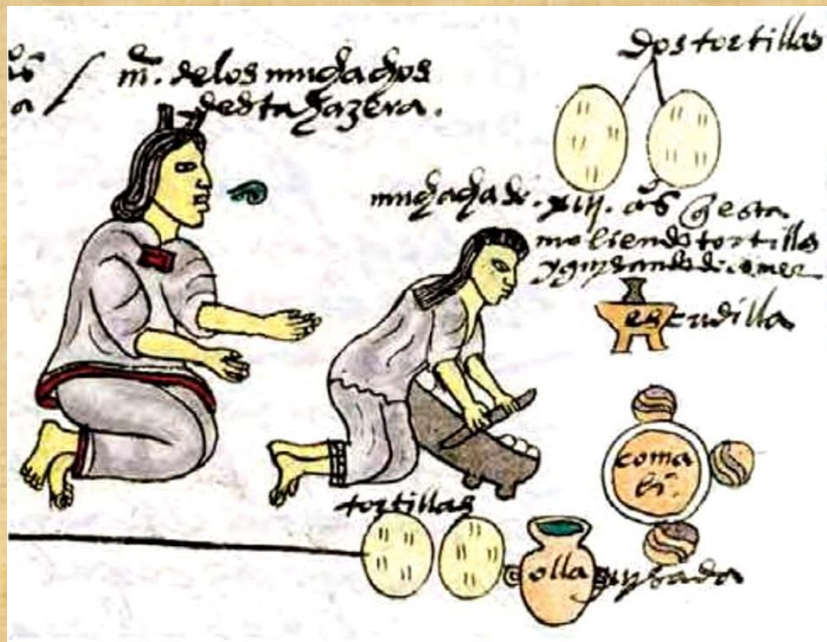 m. de los muchachos
desta hazera.
dos tortillas
muchacha de. xiij. aºs q̃ esta
moliendo tortillas
y guisando de comer
escudilla
comali.
tortillas
olla guisada